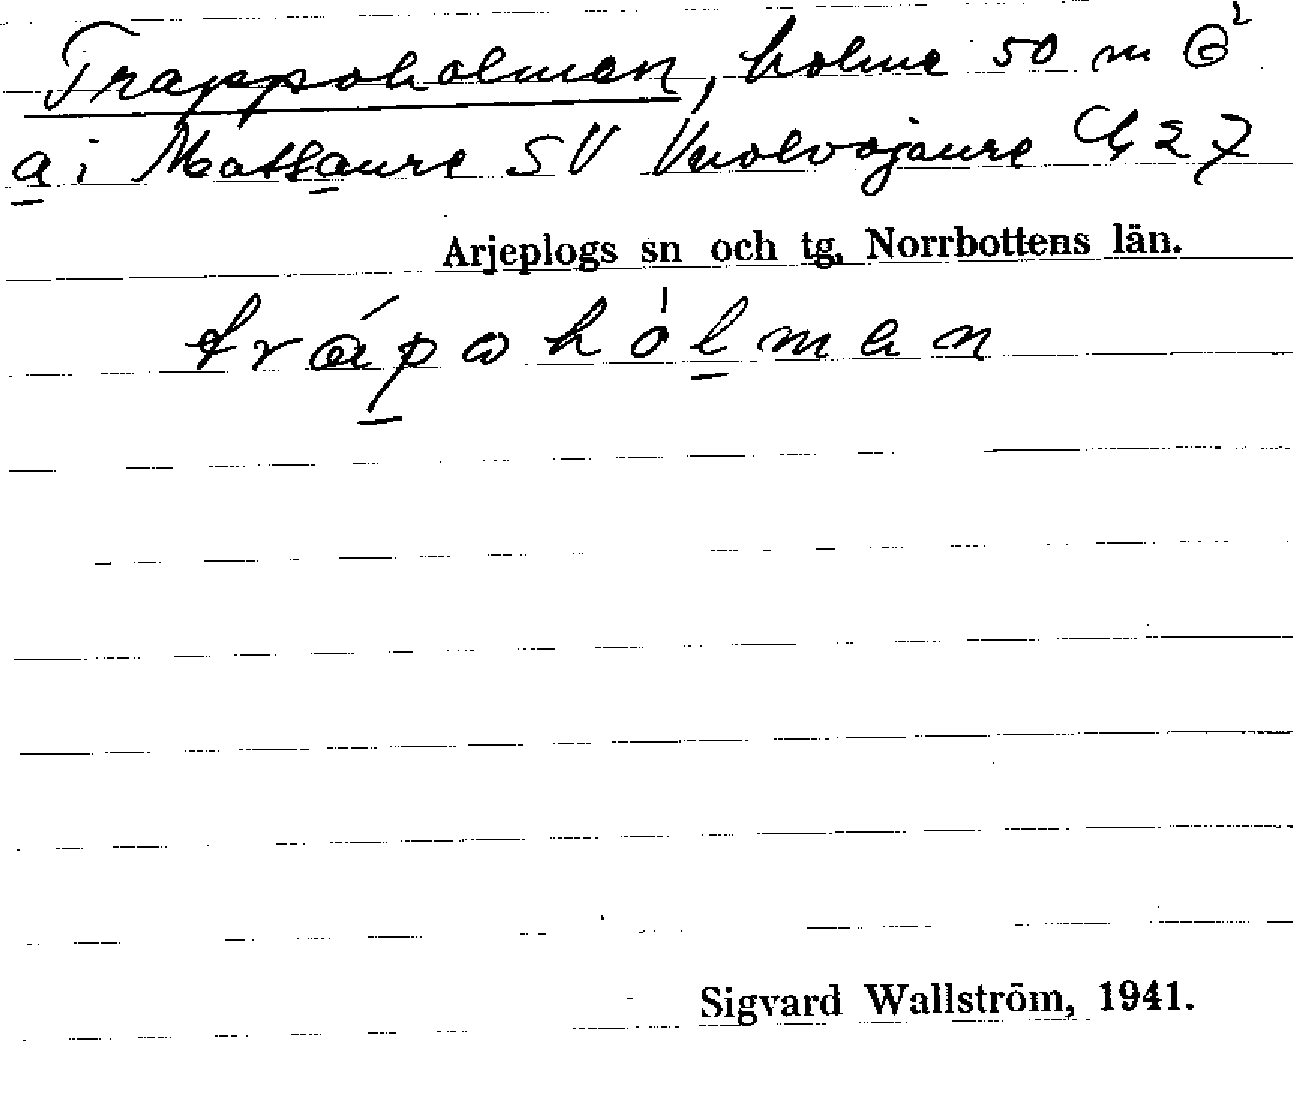 Trappoholmen, holme 50 m
a i Matsaure SV Vuolvojaure 27
Arjeplogs sn och tg, Norrbottens län.
trápohólmen
Sigvard Wallström, 1941.